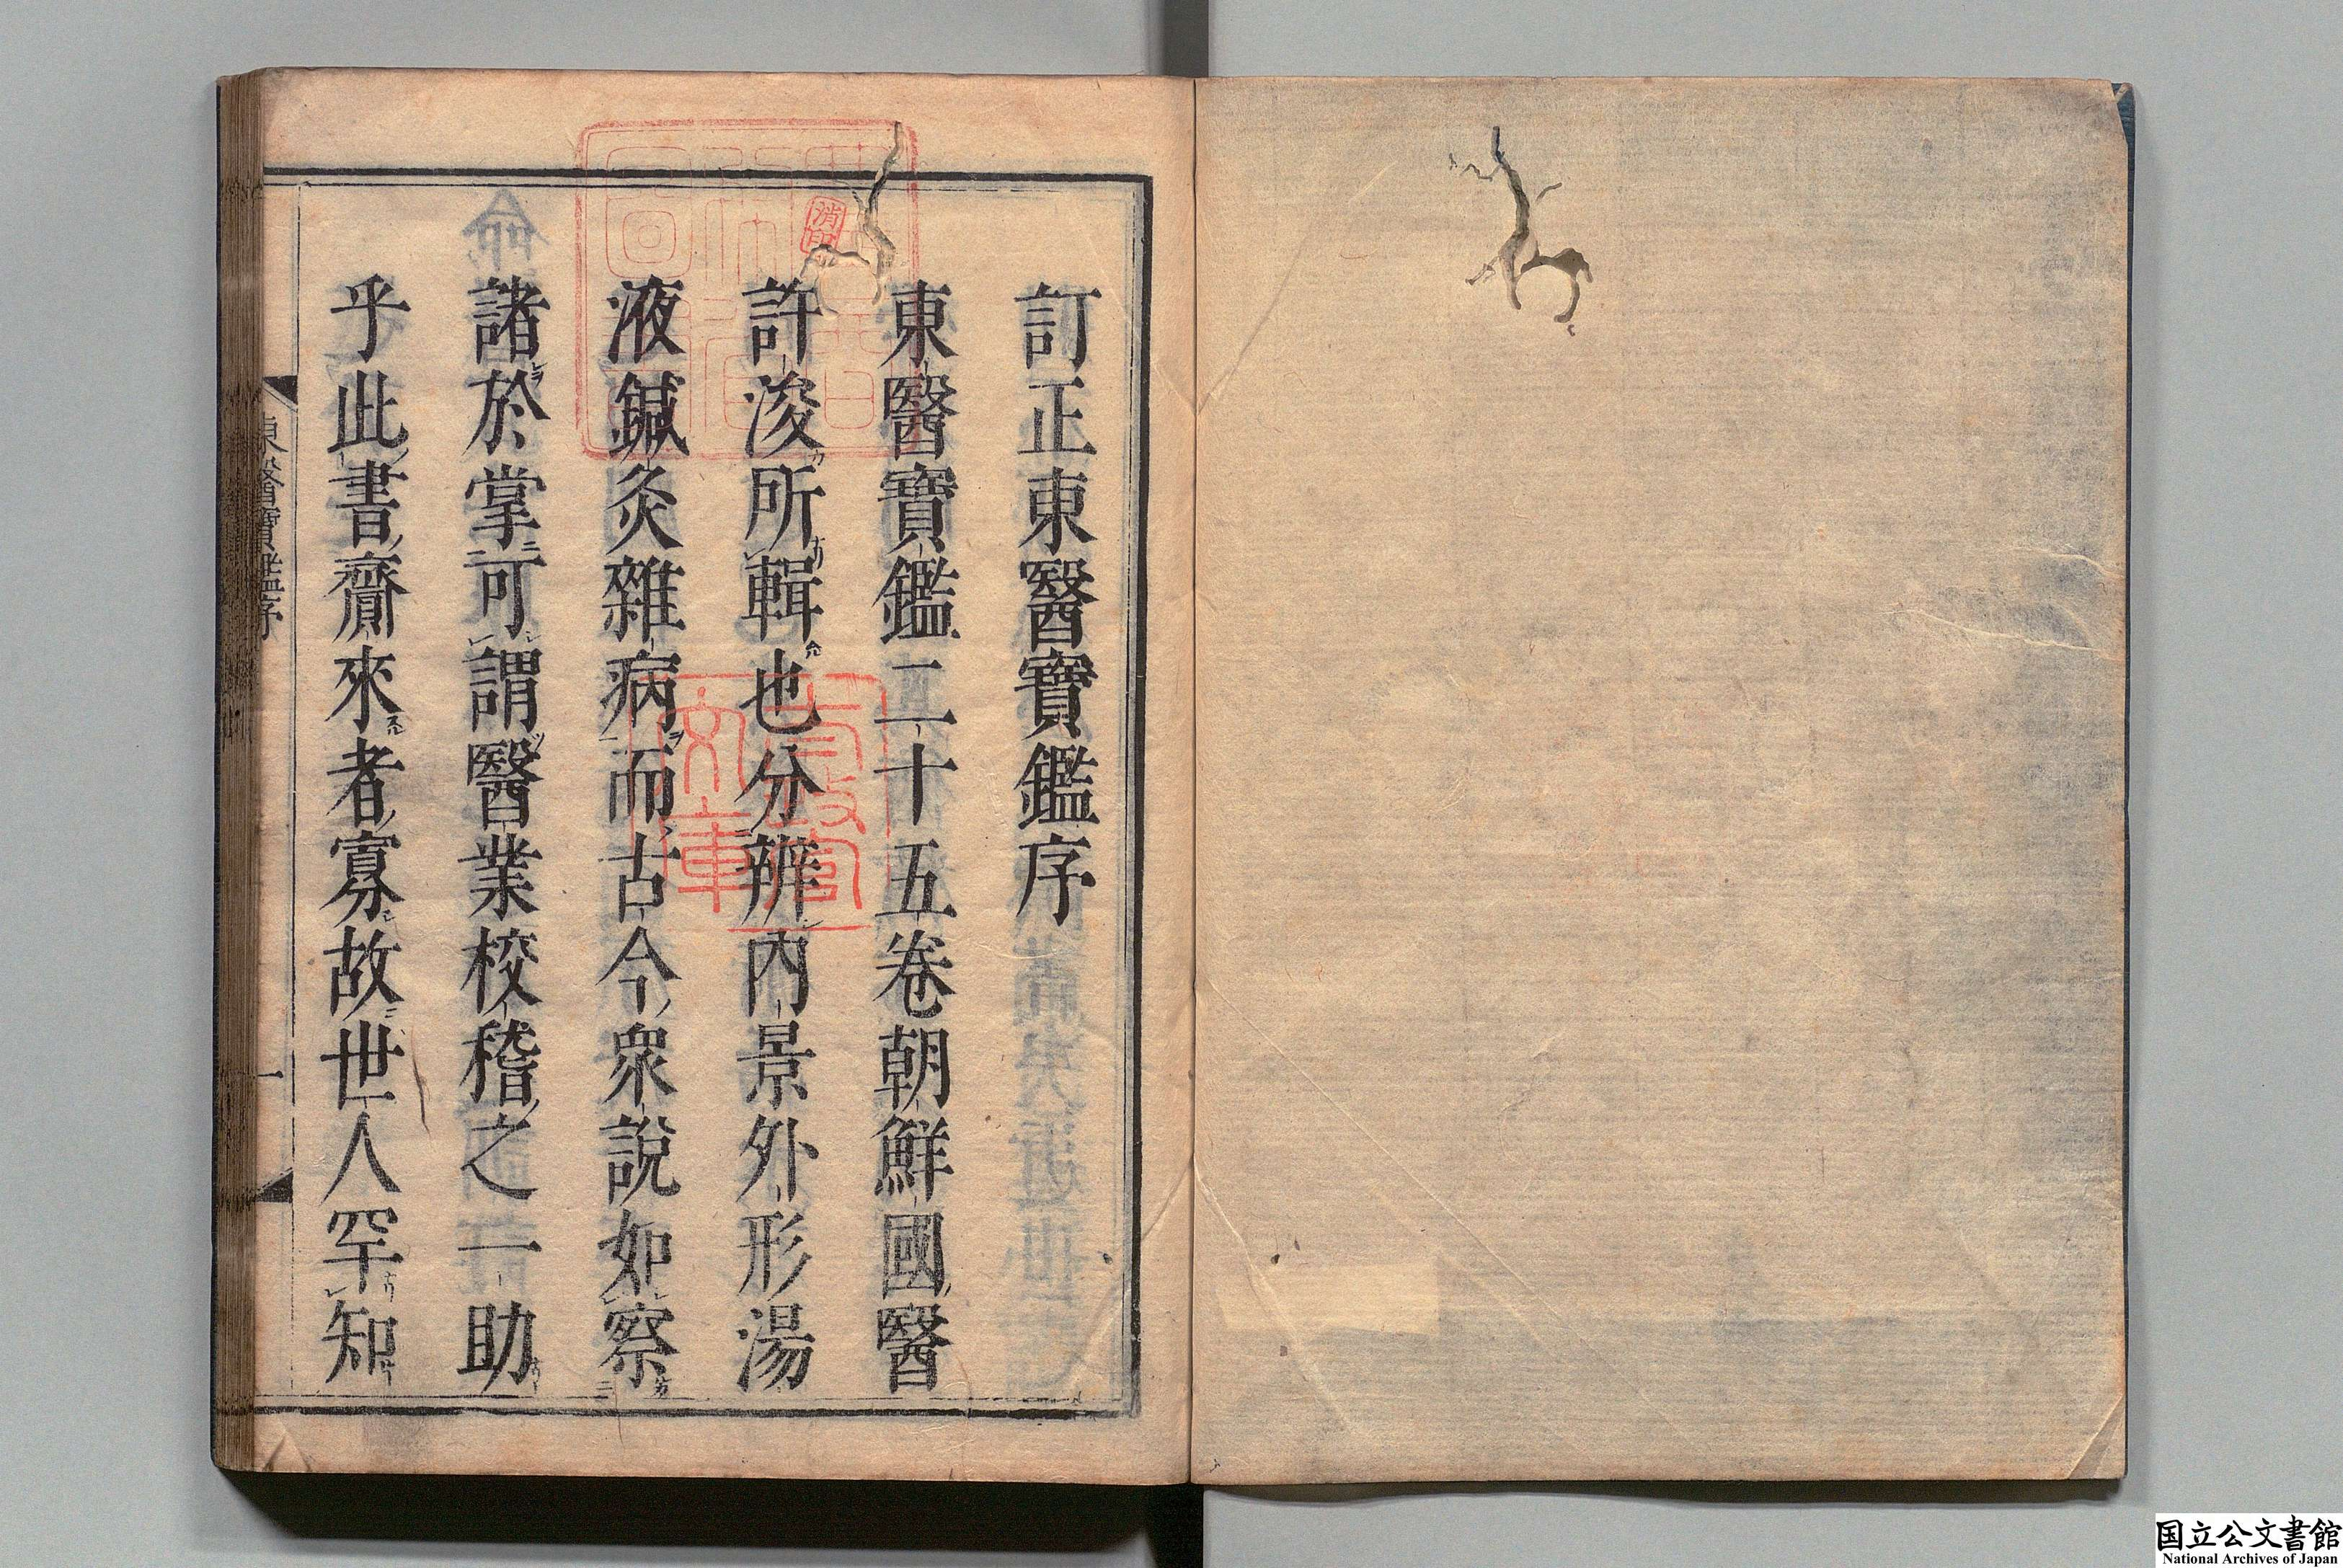 訂正東醫寶鑑序
東醫寶鑑二十五卷朝鮮國醫
許浚所輯也分辨內景外形湯
液鍼灸雜病而古今衆說如察
諸於掌可謂醫業校稽之一助
乎此書齎來者寡故世人罕知
東醫寶鑑序
一
消印
文庫
国立公文書館
National Archives of Japan